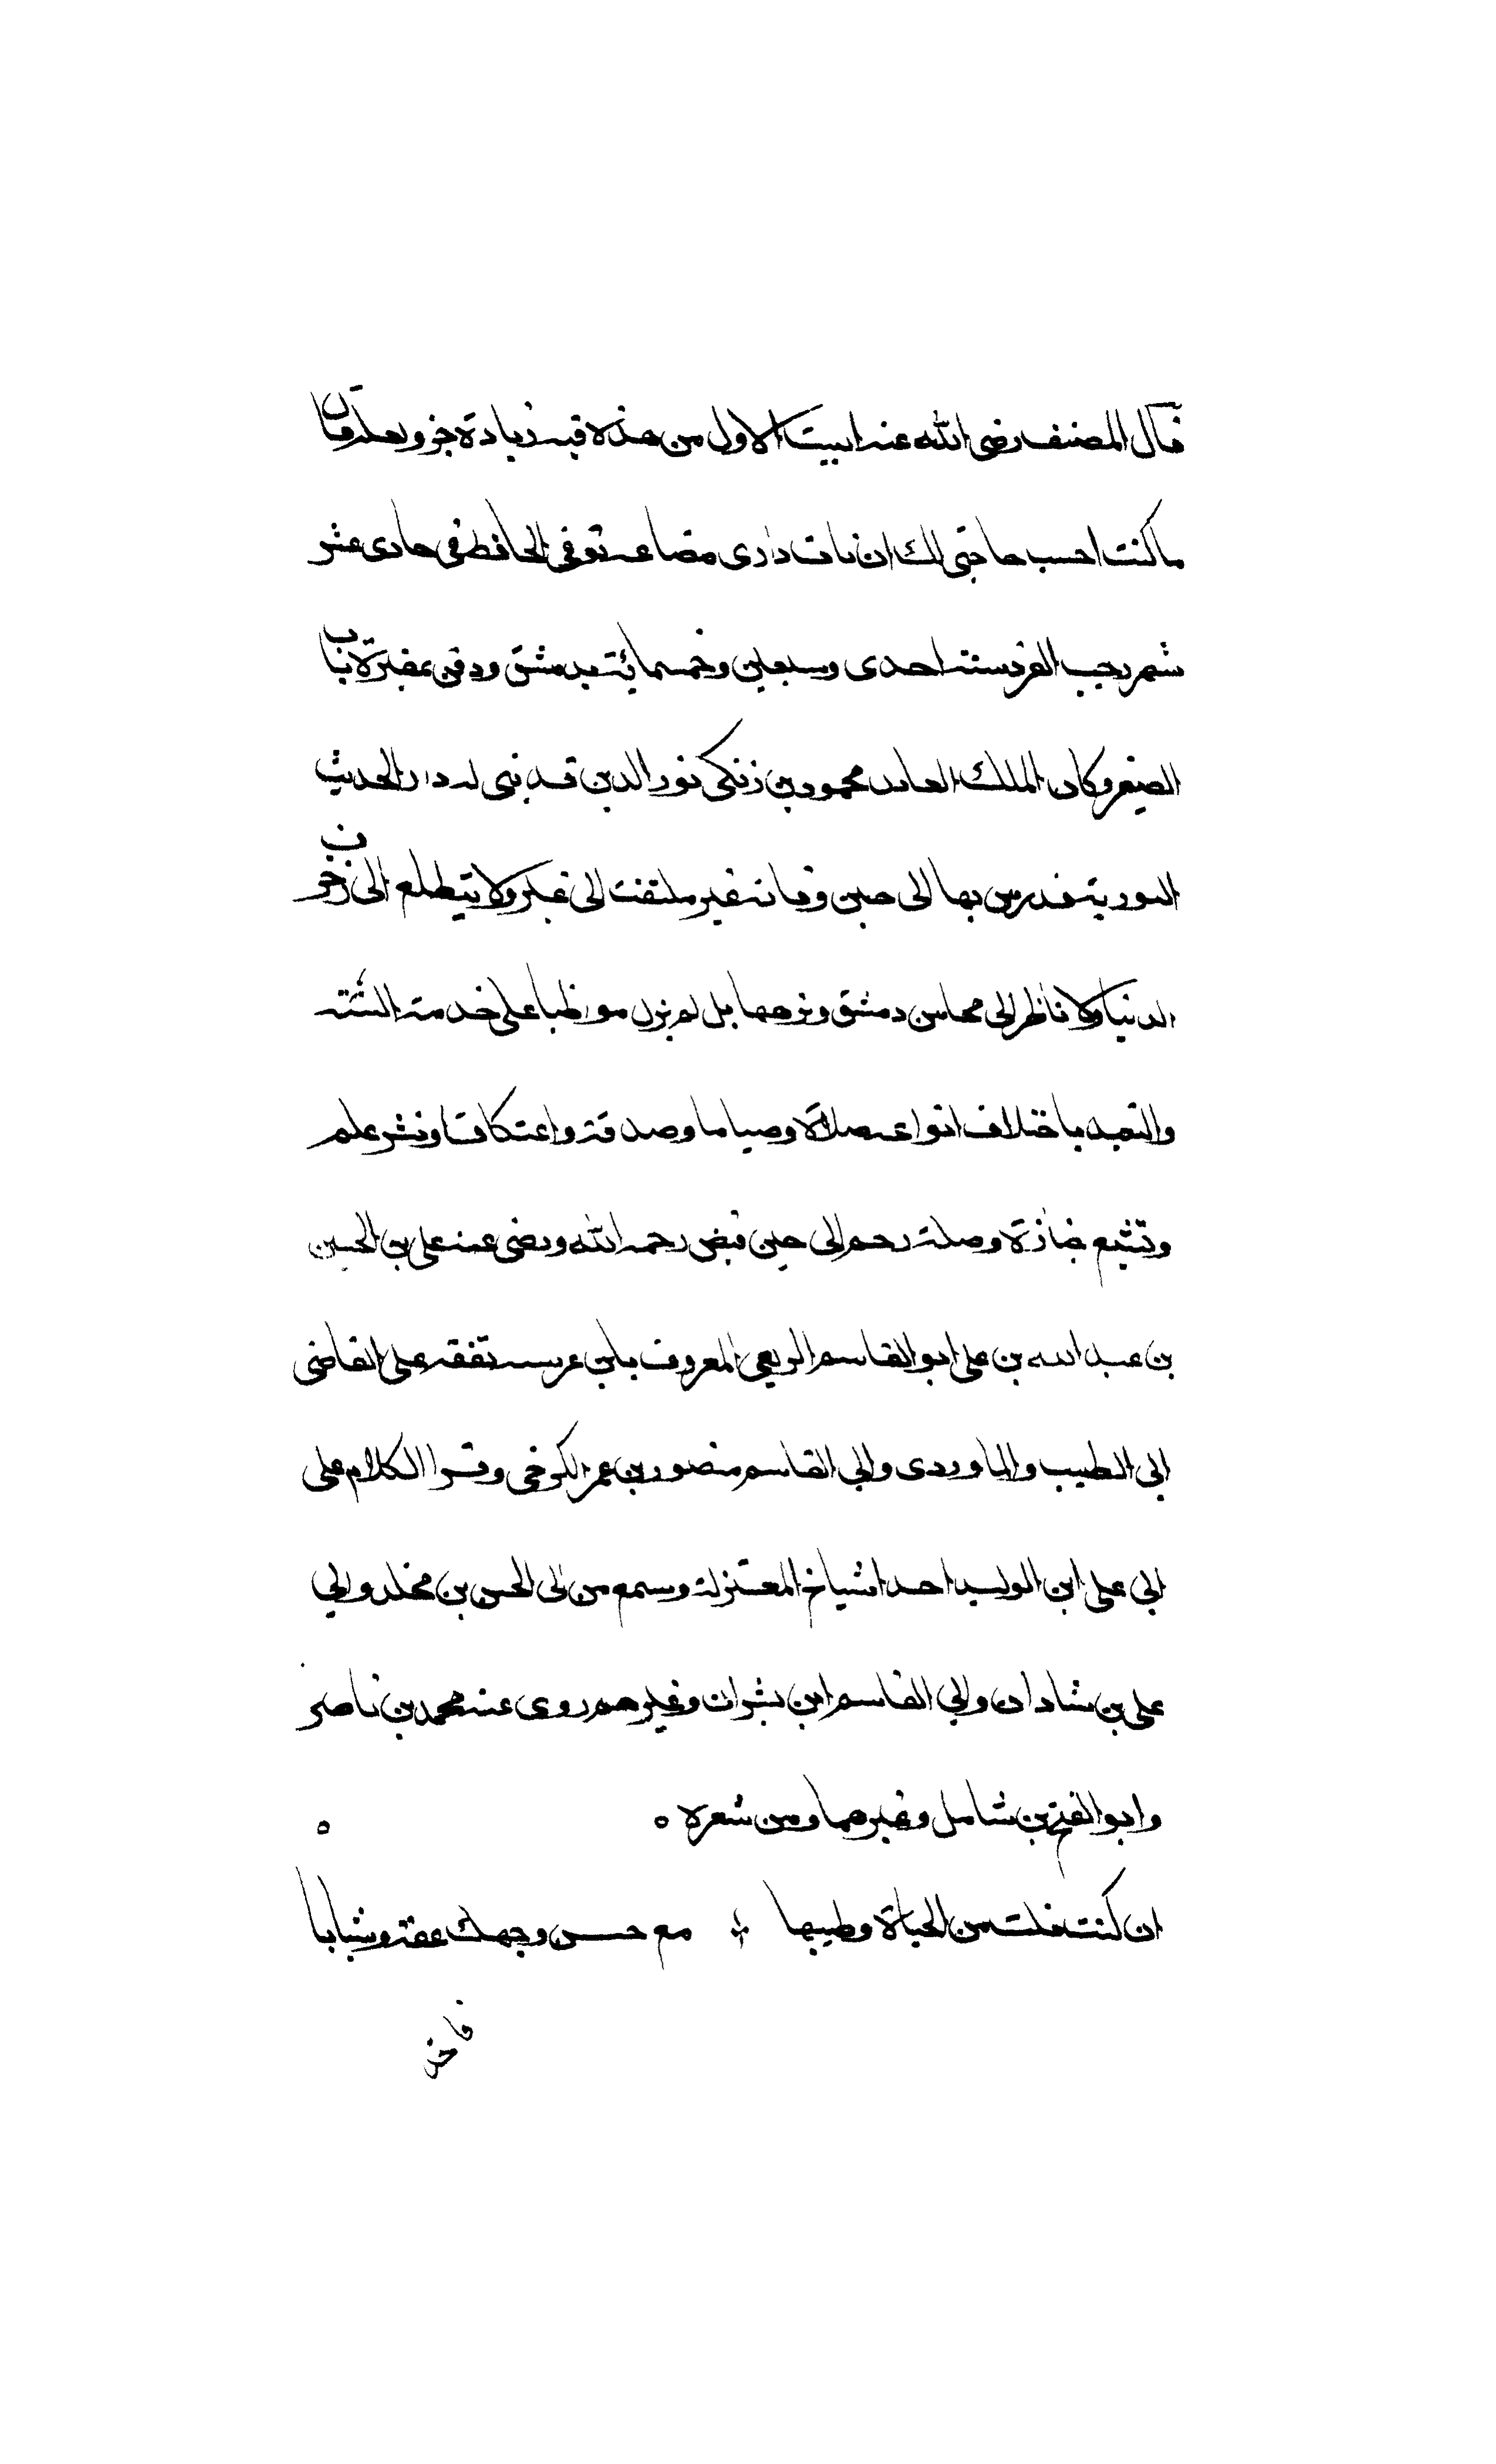 قال المصنف رضى الله عنه البيت الاول من هذه فيه زيادة جزو ولعله قال
ما كنت احسب حاجتى لك ان نات دارى مضاعه توفي الحافظ في حادى عشر
شهر رجب الفرد سنة احدى وسبعين وخمسمائة بدمشق ودفن بمقبرة باب
الصغير وكان الملك العادل محمود بن زنكى نور الدين قد بنى له دار الحديث
النورية فدرس بها الى حين وفاته غير ملتفت الى غيره ولا يتطلع الى زخرف
الدنيا ولا ناظر الى محاسن دمشق ونزهها بل لم يزل مواظبا على خدمة السنة
والتعبد باختلاف انواعه صلاة وصياما وصدقة واعتكافا ونشر علم
وتشيع جنازة وصلة رحم الى حين قبض رحمه الله ورضى عنه على بن الحسين
بن عبد الله بن على ابو القاسم الربعي المعروف بابن عريبه تفقه على القاضى
ابى الطيب والماوردى وابي القاسم منصور بن عمر الكرخى وقرا الكلام على
ابي على ابن الوليد احد اشياخ المعتزلة وسمع من ابى الحسن بن مخلد وابي
على بن شادان وابي القاسم ابن بشران وغيرهم روى عنه محمد بن ناصر
وابو الفتح بن شاتيل وغيرهما ومن شعره ه ه
ان كنت نلت من الحياة وطيبها مع حسن وجهك عفة وشبابا
فاحذر